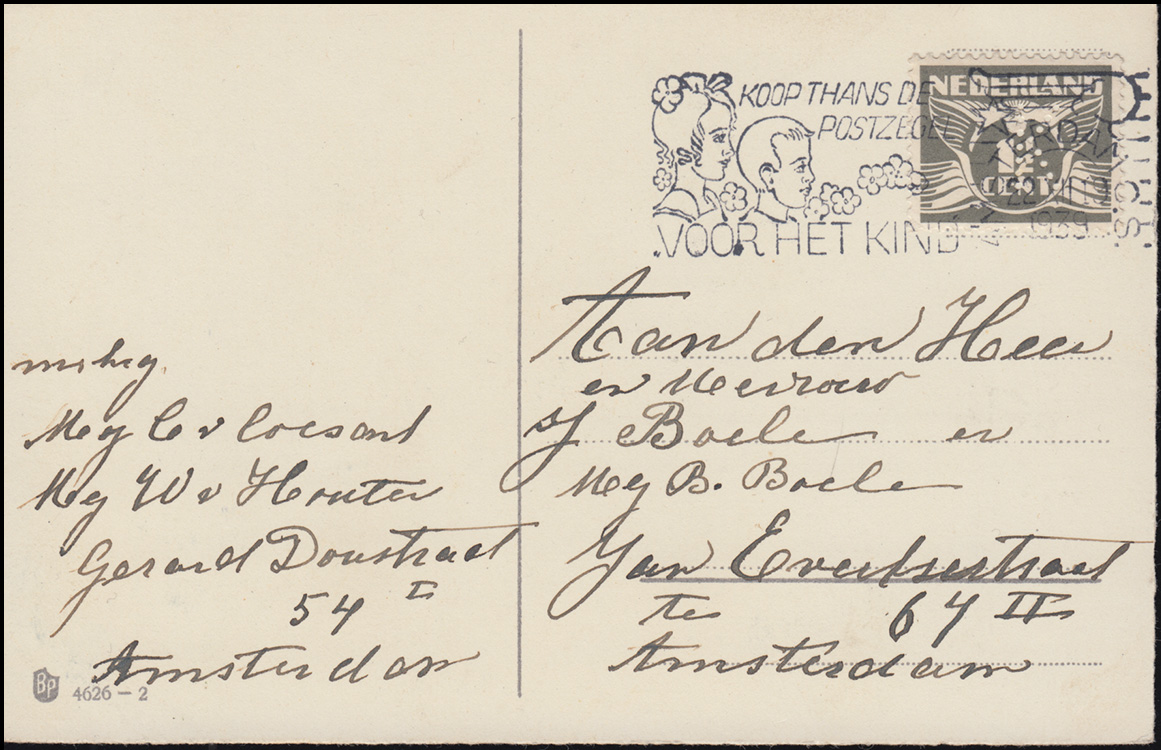 KOOP THANS DE
POSTZEGEL
VOOR HET KIND
NEDERLAND
1½
CENT
1939
Aan den Heer
en Mevrouw
J Boele en
Mej B. Boele
Jan Evertsestraat
te 67 II
Amsterdam
Mej C v
Mej W v Houten
Gerard Doustraat
54 I
Amsterdam
BP 4626 - 2